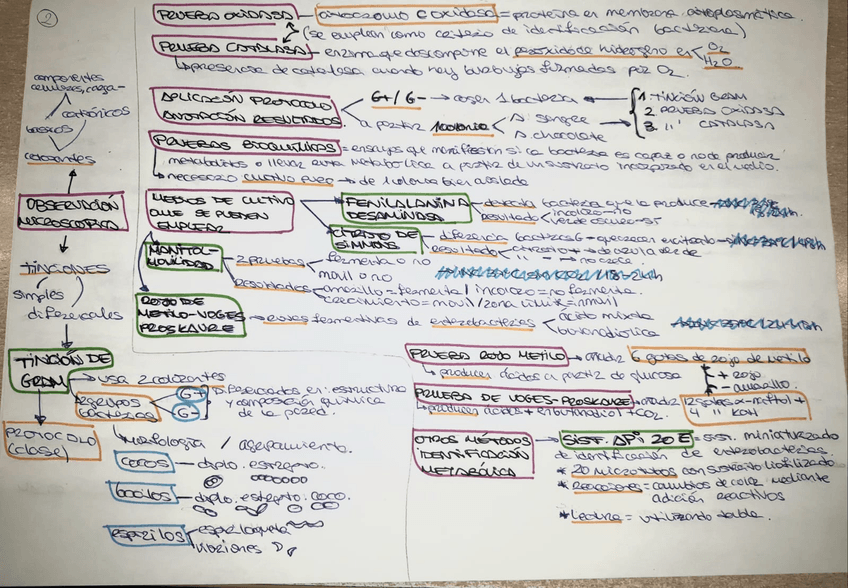 2
PRUEBA OXIDASA → citocromo c oxidasa = proteína en membrana citoplasmática.
(se emplean como criterio de identificación bacteriana)
PRUEBA CATALASA - enzima que descompone el peroxido de hidrógeno en O₂
H₂O
↳ presencia de catalasa cuando hay burbujas formadas por O₂.
componentes
celulares, carga -
catiónicos
básicos
colorantes
OBSERVACIÓN
MICROSCÓPICA
TINCIONES
simples
diferenciales
TINCIÓN DE
GRAM
→ usa 2 colorantes
2 grupos
bacterias
G+
G-
Diferenciados en: estructura
y composición química
de la pared.
PROTOCOLO
(clase)
↳ Morfología / agrupamiento.
cocos - diplo. estrepto.
bacilos - diplo. estrepto. coco.
espirilos
espiroqueta
vibriones
APLICACIÓN PROTOCOLO
ANOTACIÓN RESULTADOS
G+ / G- → coger 1 bacteria
a partir 1 colonia
A. sangre
A chocolate
1. TINCIÓN GRAM
2. PRUEBA OXIDASA
3. '' CATALASA
PRUEBAS BIOQUÍMICAS = ensayos que manifiestan si la bacteria es capaz o no de producir
metabolitos o llevar ruta metabólica a partir de un sustrato incorporado en el medio.
↳ necesario cultivo puro → de 1 colonia bien aislada
MEDIOS DE CULTIVO
QUE SE PUEDEN
EMPLEAR
FENILALANINA
DESAMINASA
- detecta bacteria que la produce
resultado
incoloro = no
verde oscuro = sí
CITRATO DE
SIMMONS
- diferencia bacterias G-
resultado
'' '' → no crece
MANITOL-
MOVILIDAD
2 pruebas
fermenta o no
móvil o no
18-24h
Resultados = amarillo = fermenta / incoloro = no fermenta.
crecimiento = móvil / zona límite = inmóvil
ROJO DE
METILO-VOGES
PROSKAURE
→ rutas fermentativas de enterobacterias
ácido mixta
butanodiólica
PRUEBA ROJO METILO → añadir 6 gotas de rojo de metilo
↳ producir ácidos a partir de glucosa
+ rojo.
- amarillo.
PRUEBA DE VOGES-PROSKAURE → añadir 12 gotas α-naftol +
4 '' KOH
↳ producir ácidos + en butanodiol + CO₂.
OTROS MÉTODOS
IDENTIFICACIÓN
METABÓLICA
→ SIST. API 20 E = sist. miniaturizado
de identificación de enterobacterias.
* 20 microtubos con sustrato liofilizado
* Reacciones = cambios de color mediante
adición reactivos
* Lectura = utilizando tabla.